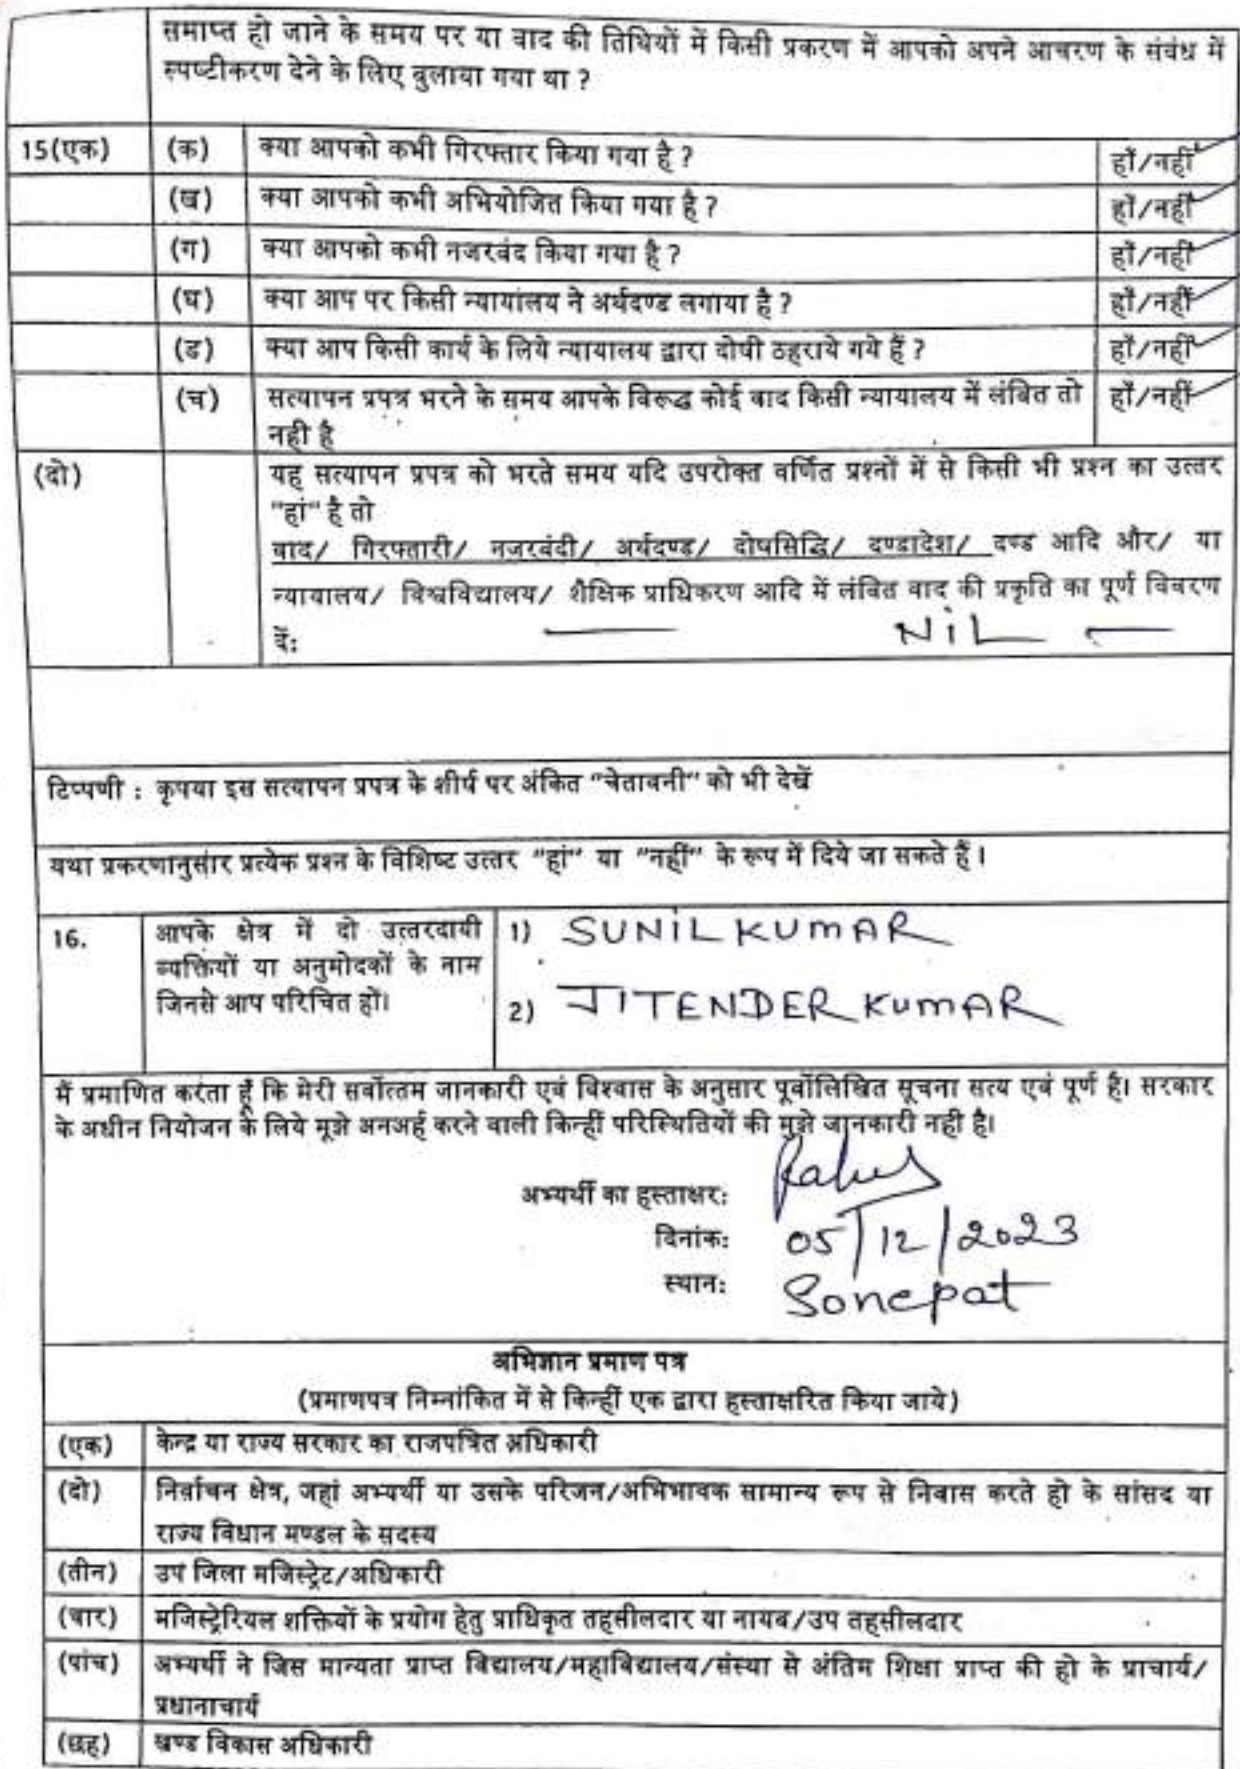 समाप्त हो जाने के समय पर या वाद की तिथियों में किसी प्रकरण में आपको अपने आचरण के संबंध में
स्पष्टीकरण देने के लिए बुलाया गया था ?
15(एक) (क) क्या आपको कभी गिरफ्तार किया गया है ? हाँ/नहीं
(ख) क्या आपको कभी अभियोजित किया गया है ? हाँ/नहीं
(ग) क्या आपको कभी नजरबंद किया गया है ? हाँ/नहीं
(घ) क्या आप पर किसी न्यायालय ने अर्थदण्ड लगाया है ? हाँ/नहीं
(ड) क्या आप किसी कार्य के लिये न्यायालय द्वारा दोषी ठहराये गये हैं ? हाँ/नहीं
(च) सत्यापन प्रपत्र भरने के समय आपके विरूद्ध कोई वाद किसी न्यायालय में लंबित तो हाँ/नहीं
नही है
(दो) यह सत्यापन प्रपत्र को भरते समय यदि उपरोक्त वर्णित प्रश्नों में से किसी भी प्रश्न का उत्तर
"हां" है तो
वाद/ गिरफ्तारी/ नजरबंदी/ अर्थदण्ड/ दोषसिद्धि/ दण्डादेश/ दण्ड आदि और/ या
न्यायालय/ विश्वविद्यालय/ शैक्षिक प्राधिकरण आदि में लंबित वाद की प्रकृति का पूर्ण विवरण
दें: — NiL —
टिप्पणी : कृपया इस सत्यापन प्रपत्र के शीर्ष पर अंकित "चेतावनी" को भी देखें
यथा प्रकरणानुसार प्रत्येक प्रश्न के विशिष्ट उत्तर "हां" या "नहीं" के रूप में दिये जा सकते हैं।
16. आपके क्षेत्र में दो उत्तरदायी 1) SUNIL KUMAR
व्यक्तियों या अनुमोदकों के नाम
जिनसे आप परिचित हों। 2) JITENDER KUMAR
मैं प्रमाणित करता हूँ कि मेरी सर्वोत्तम जानकारी एवं विश्वास के अनुसार पूर्वोलिखित सूचना सत्य एवं पूर्ण है। सरकार
के अधीन नियोजन के लिये मूझे अनअर्ह करने वाली किन्हीं परिस्थितियों की मुझे जानकारी नही है।
अभ्यर्थी का हस्ताक्षर: Rahul
दिनांक: 05/12/2023
स्थान: Sonepat
अभिज्ञान प्रमाण पत्र
(प्रमाणपत्र निम्नांकित में से किन्हीं एक द्वारा हस्ताक्षरित किया जाये)
(एक) केन्द्र या राज्य सरकार का राजपत्रित अधिकारी
(दो) निर्वाचन क्षेत्र, जहां अभ्यर्थी या उसके परिजन/अभिभावक सामान्य रूप से निवास करते हो के सांसद या
राज्य विधान मण्डल के सदस्य
(तीन) उप जिला मजिस्ट्रेट/अधिकारी
(चार) मजिस्ट्रेरियल शक्तियों के प्रयोग हेतु प्राधिकृत तहसीलदार या नायब/उप तहसीलदार
(पांच) अभ्यर्थी ने जिस मान्यता प्राप्त विद्यालय/महाविद्यालय/संस्था से अंतिम शिक्षा प्राप्त की हो के प्राचार्य/
प्रधानाचार्य
(छह) खण्ड विकास अधिकारी